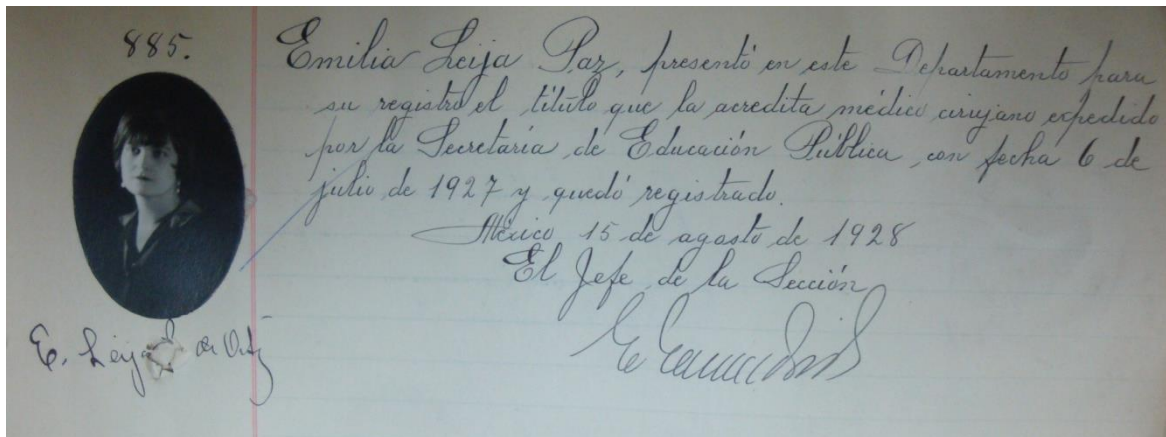 885.
Emilia Leija Paz, presentó en este Departamento para
su registro el título que la acredita médico cirujano expedido
por la Secretaría de Educación Pública con fecha 6 de
julio de 1927 y quedó registrado.
México 15 de agosto de 1928
El Jefe de la Sección
E. Leija